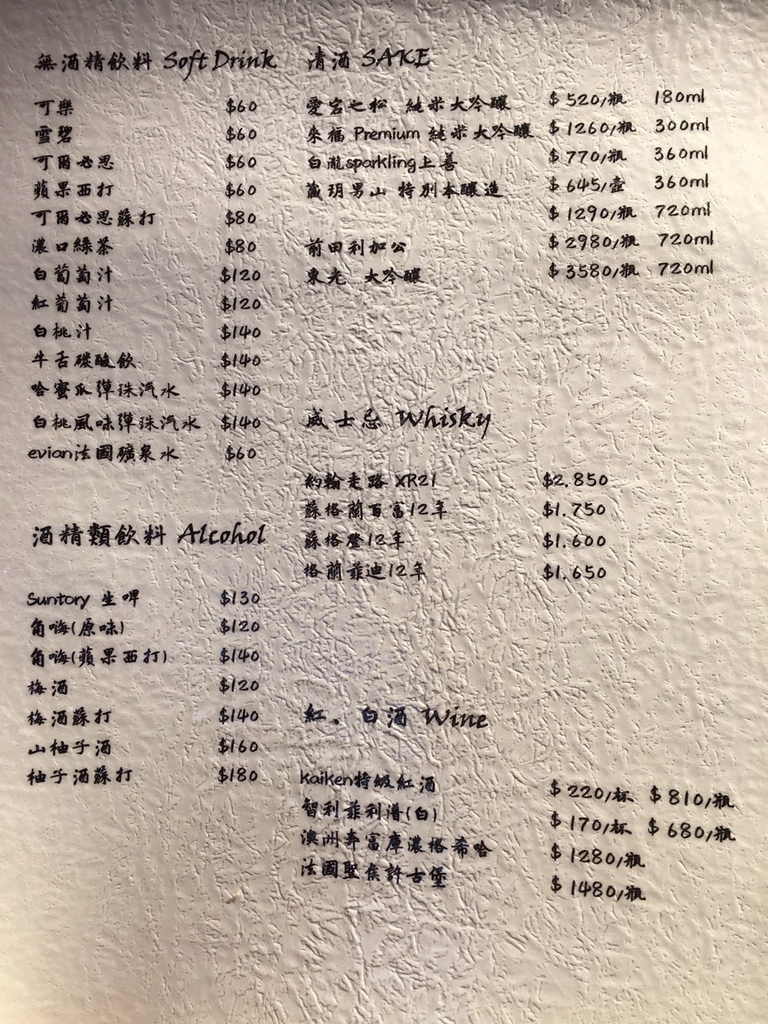 無酒精飲料 Soft Drink
可樂 $60
雪碧 $60
可爾必思 $60
蘋果西打 $60
可爾必思蘇打 $80
濃口綠茶 $80
白葡萄汁 $120
紅葡萄汁 $120
白桃汁 $140
牛舌碳酸飲 $140
哈蜜瓜彈珠汽水 $140
白桃風味彈珠汽水 $140
evian法國礦泉水 $60
酒精類飲料 Alcohol
Suntory 生啤 $130
角嗨(原味) $120
角嗨(蘋果西打) $140
梅酒 $120
梅酒蘇打 $140
山柚子酒 $160
柚子酒蘇打 $180
清酒 SAKE
愛宕之松 純米大吟釀 $520/瓶 180ml
來福 Premium 純米大吟釀 $1260/瓶 300ml
白瀧sparkling上善 $770/瓶 360ml
藏玥男山 特別本釀造 $645/壺 360ml
$1290/瓶 720ml
前田利加公 $2980/瓶 720ml
東光 大吟釀 $3580/瓶 720ml
威士忌 Whisky
約翰走路 XR21 $2,850
蘇格蘭百富12年 $1,750
蘇格登12年 $1,600
格蘭菲迪12年 $1,650
紅、白酒 Wine
kaiken特級紅酒 $220/杯 $810/瓶
智利菲利浦(白) $170/杯 $680/瓶
澳洲奔富庫濃格希哈 $1280/瓶
法國聖侯許古堡 $1480/瓶